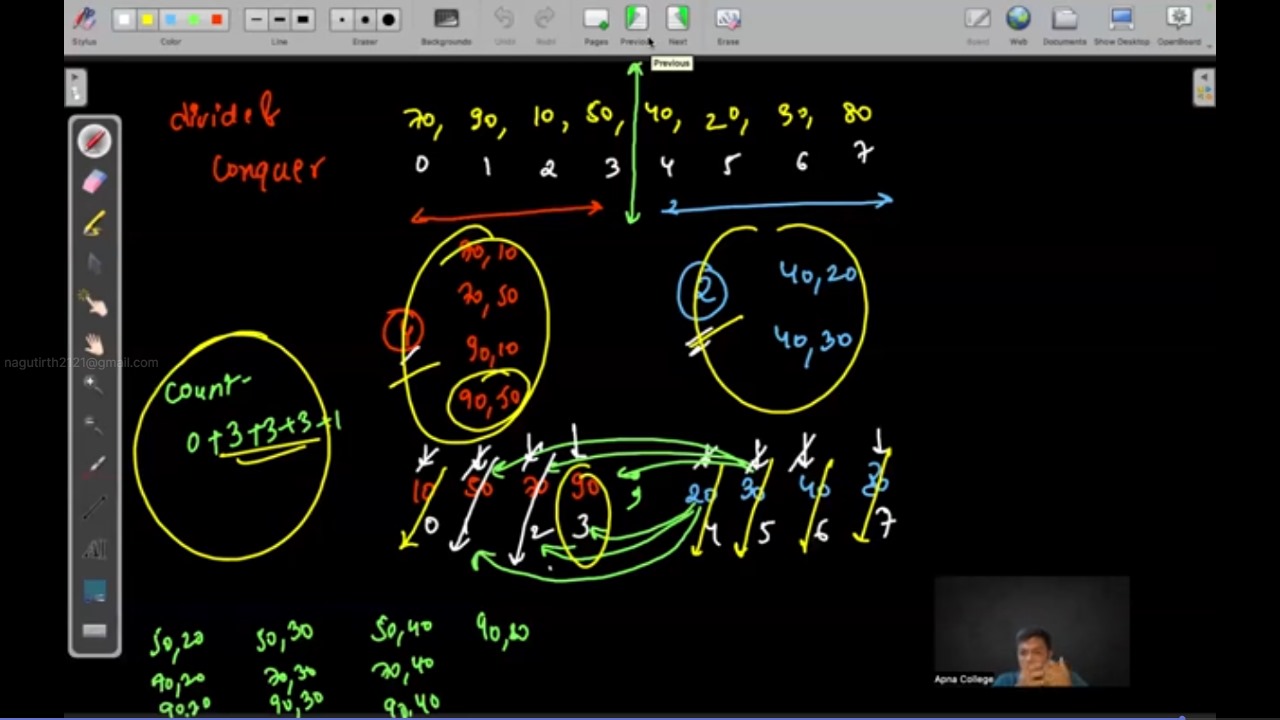 Stylus Color Line Eraser Backgrounds Undo Redo Pages Previous Next Erase Board Web Documents Show Desktop OpenBoard
Previous
divide &
Conquer
70, 90, 10, 50, 40, 20, 30, 80
0 1 2 3 4 5 6 7
70, 10
70, 50
4
90, 10
90, 50
2
40, 20
40, 30
nagutirth2121@gmail.com
Count-
0 + 3 + 3 + 3 + 1
10 50 70 90 20 30 40 80
0 2 3 4 5 6 7
50, 20 50, 30 50, 40 90, 80
70, 30 70, 40
90, 20 90, 30 90, 40
Apna College